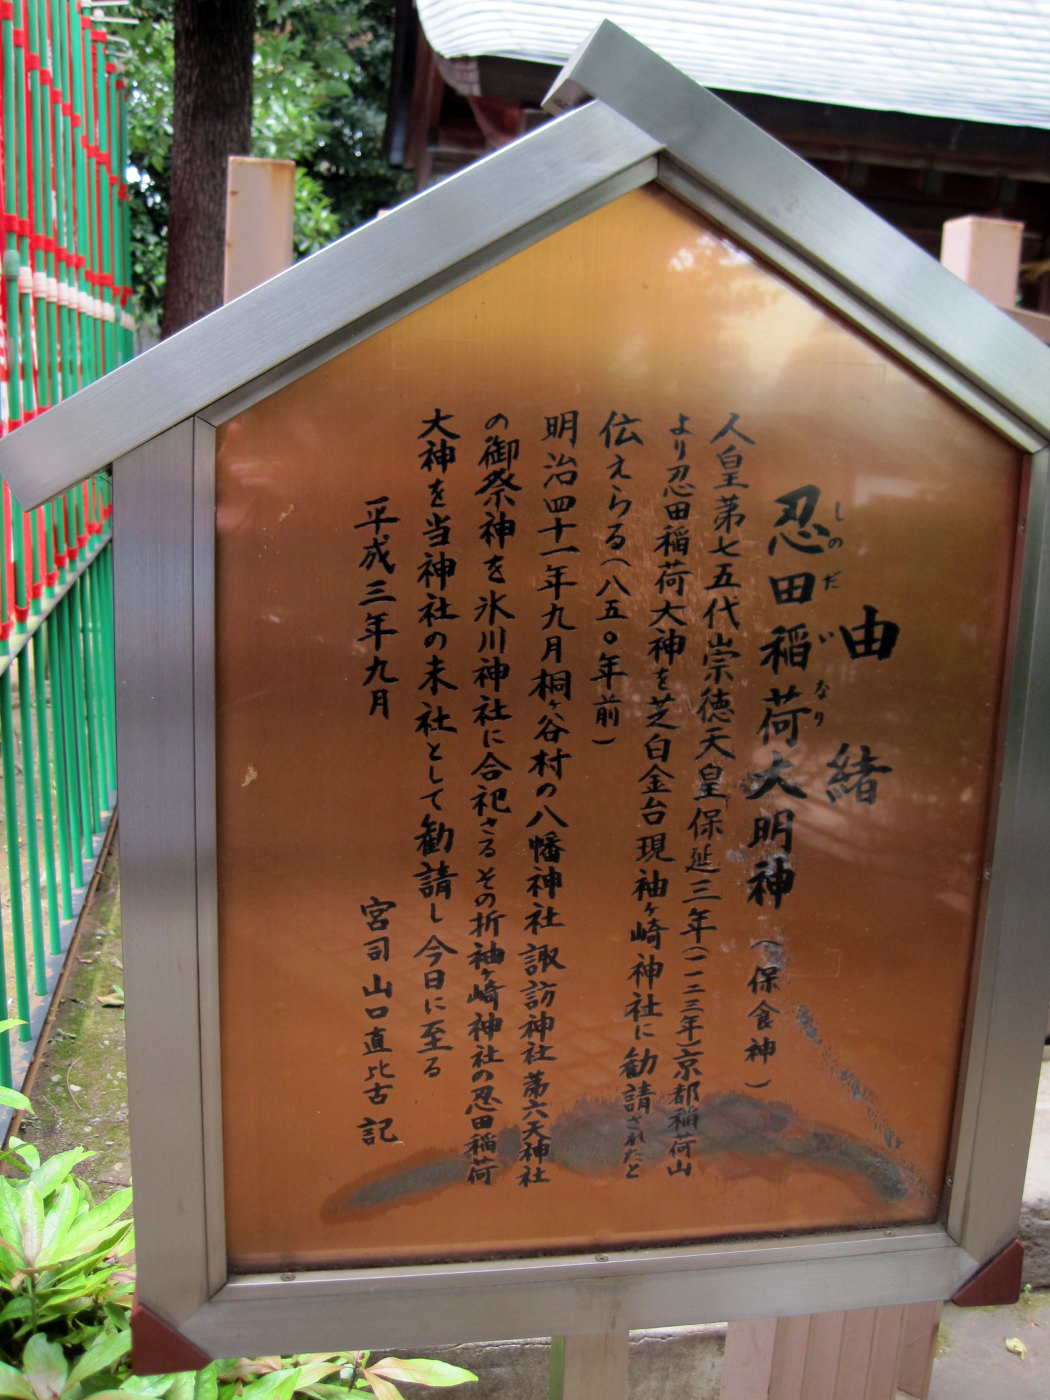 由緒
忍田稲荷大明神(保食神)
しのだ いなり
人皇第七五代崇徳天皇保延三年(一一三三年)京都稲荷山
より忍田稲荷大神を芝白金台現袖ヶ崎神社に勧請されたと
伝えらる(八五〇年前)
明治四十一年九月桐ヶ谷村の八幡神社諏訪神社第六天神社
の御祭神を氷川神社に合祀さるその折袖ヶ崎神社の忍田稲荷
大神を当神社の末社として勧請し今日に至る
平成三年九月 宮司 山口直比古 記